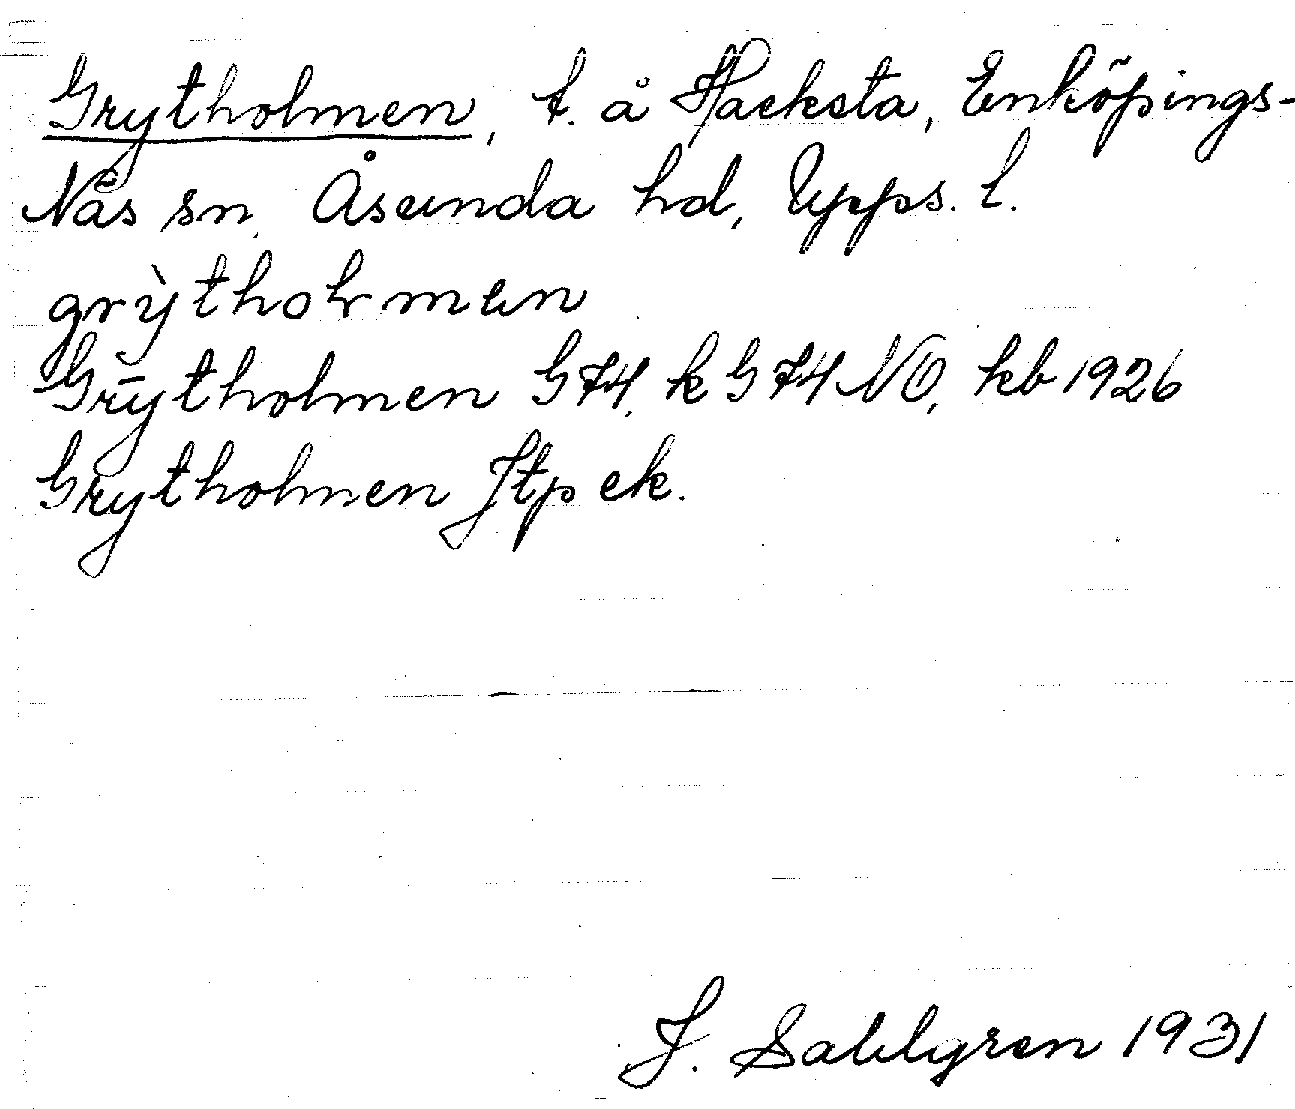 Grytholmen, t. å Hacksta, Enköpings-
Näs sn, Åsunda hd, Upps. l.
grỳtholmen
Grytholmen G74, k G74 NO, kb 1926
Grytholmen Jtp ek.
J. Sahlgren 1931